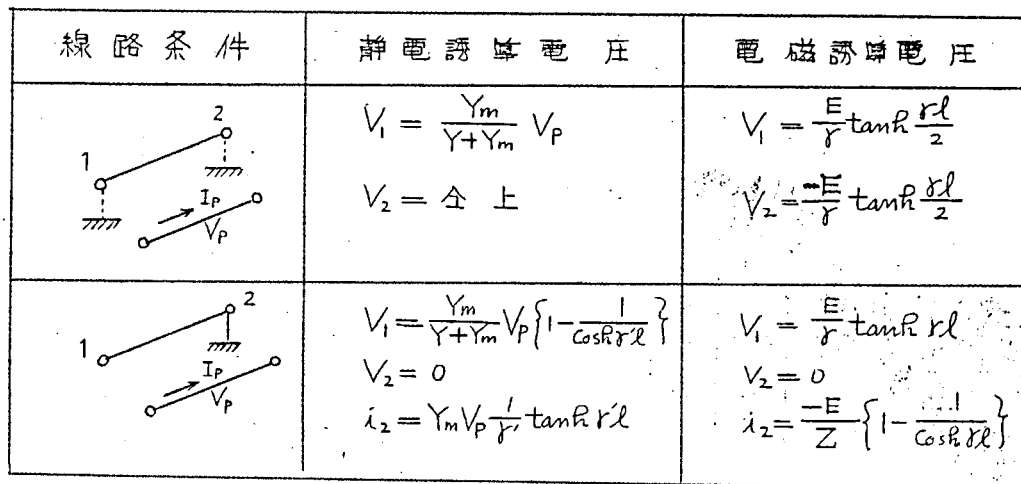 線路条件
静電誘導電圧
電磁誘導電圧
1
2
I_P
V_P
V_1 = \frac{Y_m}{Y+Y_m} V_P
V_2 = 仝上
V_1 = \frac{E}{γ} tanh \frac{γl}{2}
V_2 = \frac{-E}{γ} tanh \frac{γl}{2}
1
2
I_P
V_P
V_1 = \frac{Y_m}{Y+Y_m} V_P {1 - \frac{1}{cosh γ'l}}
V_2 = 0
i_2 = Y_m V_P \frac{1}{γ'} tanh γ'l
V_1 = \frac{E}{γ} tanh γl
V_2 = 0
i_2 = \frac{-E}{Z} {1 - \frac{1}{cosh γl}}